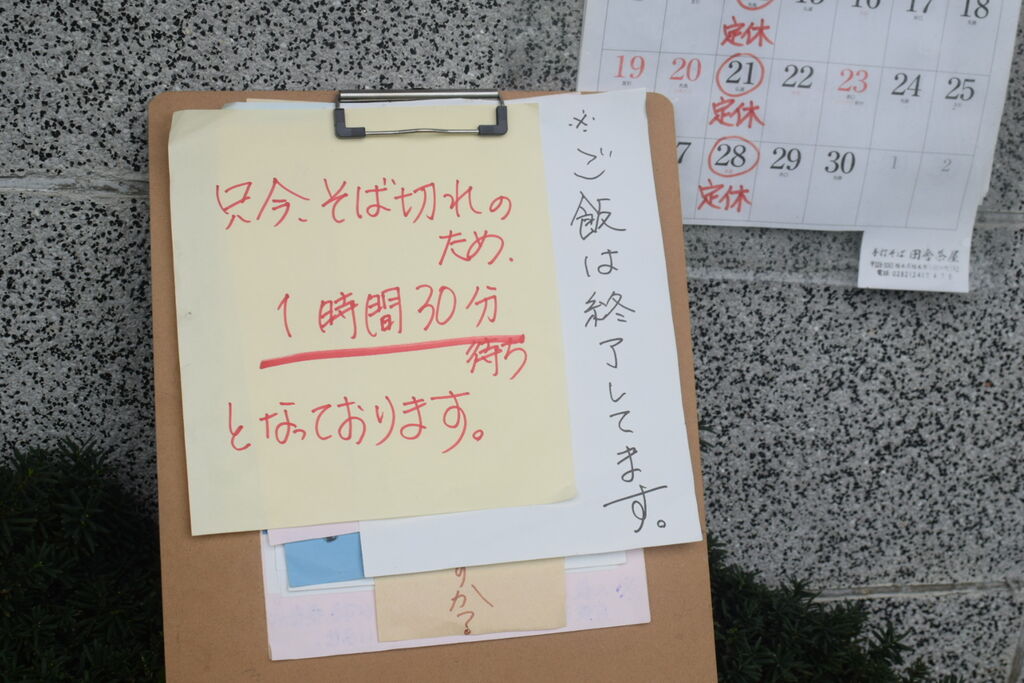 只今、そば切れの
ため、
1時間30分
待ち
となっております。
※ご飯は終了してます。
すか?
16 17 18
定休
19 20 21 22 23 24 25
定休
7 28 29 30 1 2
定休
手打そば